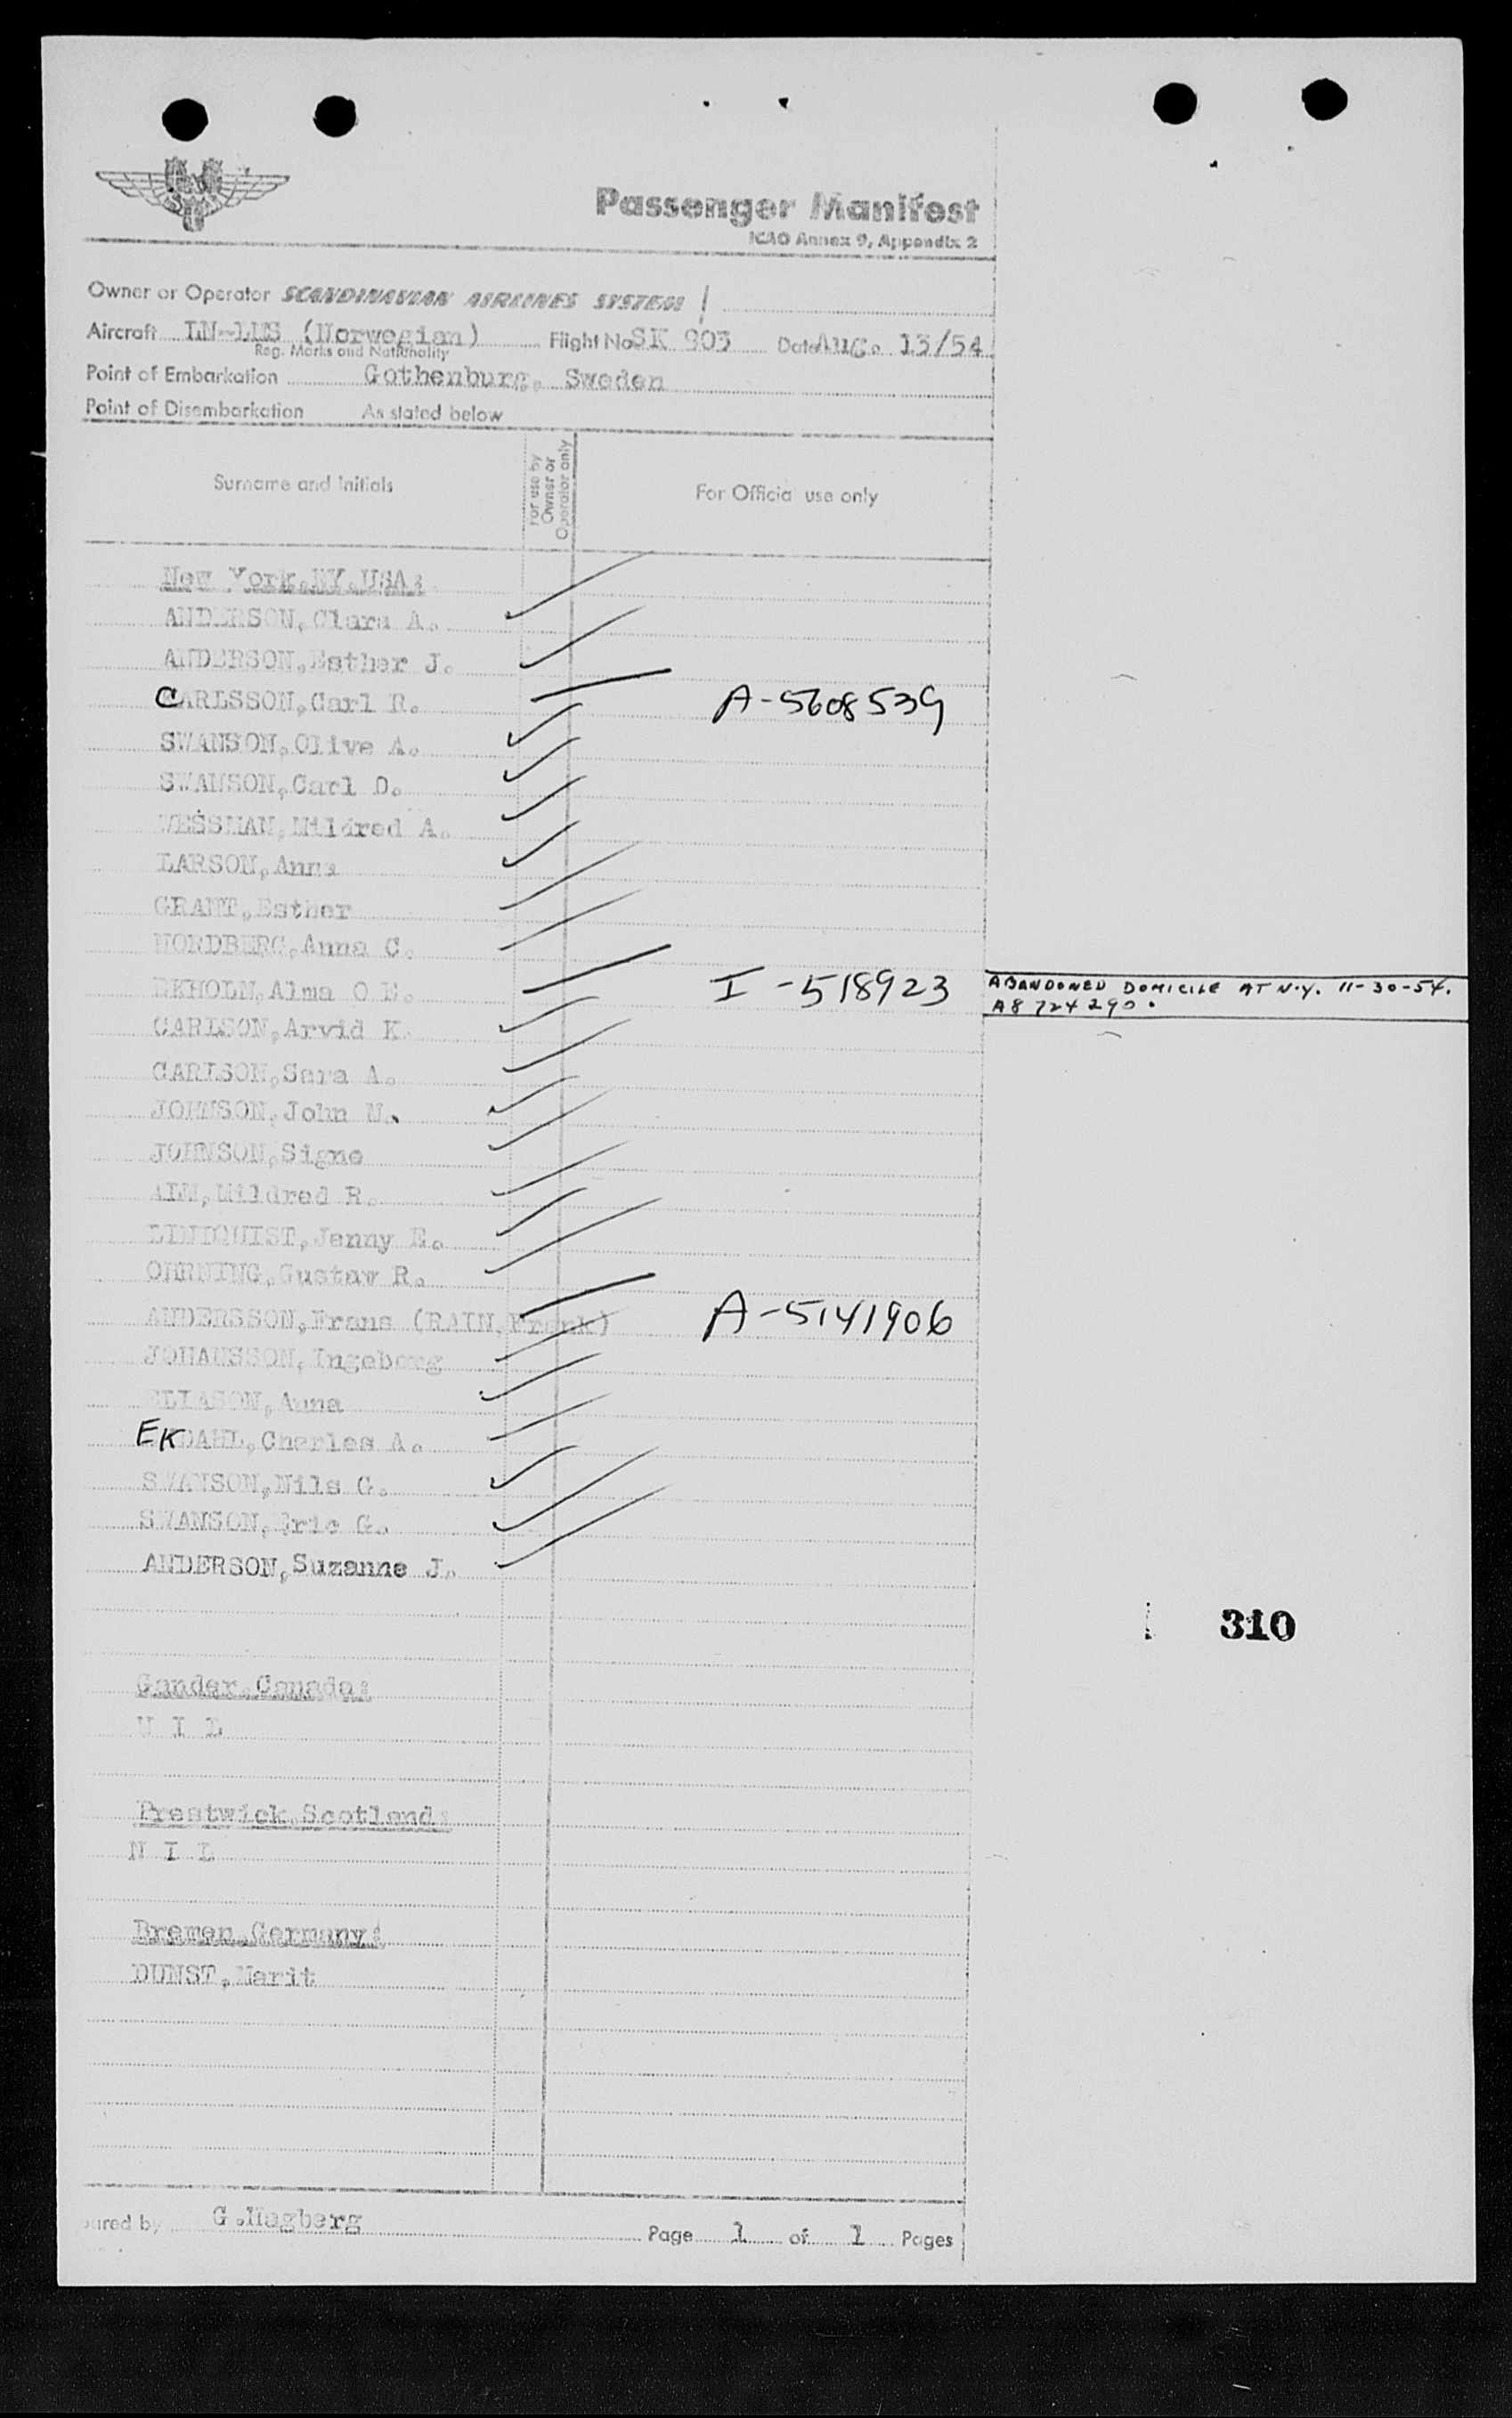 Passenger Manifest
ICAO Annex 9, Appendix 2
Owner or Operator SCANDINAVIAN AIRLINES SYSTEM
Aircraft LN-LMS (Norwegian) Flight No. SK 903 Date Aug. 13/54
Reg. Marks and Nationality
Point of Embarkation Gothenburg, Sweden
Point of Disembarkation As stated below
Surname and Initials
For use by Owner or Operator only
For Official use only
New York,NY,USA:
ANDERSON,Clara A.
ANDERSON,Esther J.
CARLSSON,Carl R. A-5608539
SWANSON,Olive A.
SWANSON,Carl D.
WESSMAN,Mildred A.
LARSON,Anna
GRANT,Esther
NORDBERG,Anna C.
EKHOLM,Alma O E. I-518923 ABANDONED DOMICILE AT N.Y. 11-30-54.
A8 724 290.
CARLSON,Arvid K.
CARLSON,Sara A.
JOHNSON,John N.
JOHNSON,Signe
ALM,Mildred R.
LINDQUIST,Jenny E.
OHRNING,Gustav R.
ANDERSSON,Frans (RAIN,Frank) A-5141906
JOHANSSON,Ingeborg
ELIASON,Anna
EKDAHL,Charles A.
SWANSON,Nils G.
SWANSON,Eric G.
ANDERSON,Suzanne J.
310
Gander,Canada:
N I L
Prestwick,Scotland:
N I L
Bremen,Germany:
DUNST,Marit
ared by G.Hagberg
Page 1 of 1 Pages